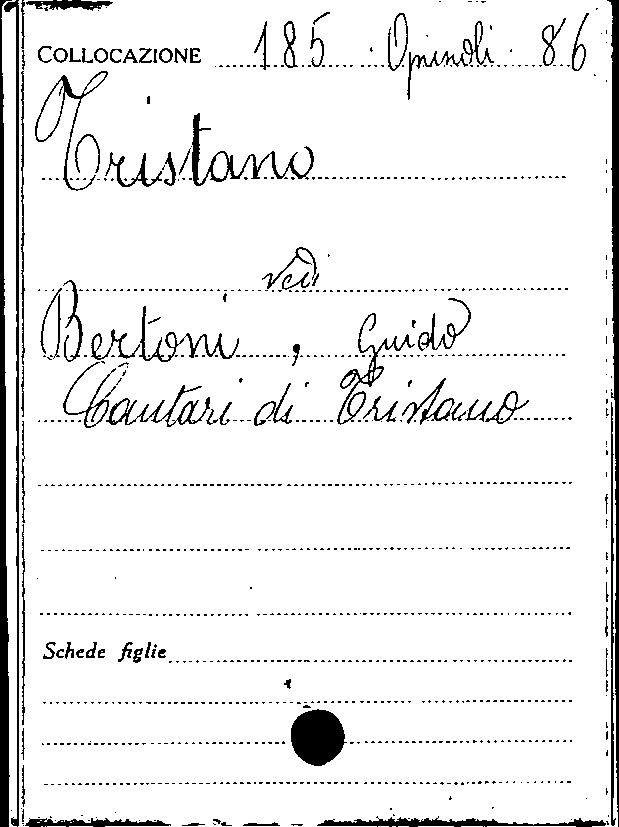 COLLOCAZIONE 185 · Opinoli · 86
Tristano
vedi
Bertoni, Guido
Cantari di Tristano
Schede figlie